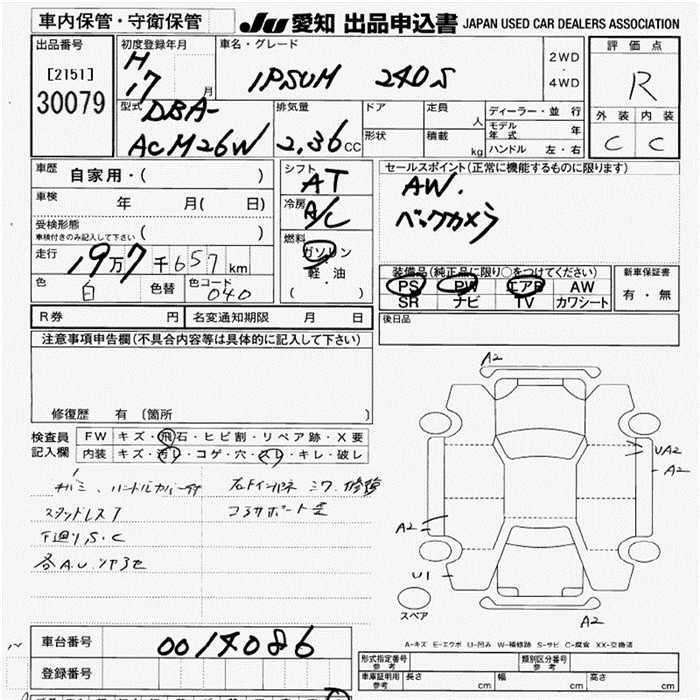 車内保管・守衛保管
JU 愛知 出品申込書 JAPAN USED CAR DEALERS ASSOCIATION
出品番号
[2151]
30079
初度登録年月
H
17 月
車名・グレード
IPSUM 240S
2WD
・
4WD
評価点
R
外装 内装
C C
型式
DBA-
ACM26W
排気量
2.36cc
ドア
形状
定員
人
積載
kg
ディーラー・並行
モデル年式 年
ハンドル 左・右
車歴
自家用・( )
車検
年 月( 日)
受検形態
車検付きのみ記入して下さい ( )
走行
19万7千657km
色
白
色替
色コード
040
シフト
AT
冷房
A/C
燃料
ガソリン
軽・油
( )
セールスポイント(正常に機能するものに限ります)
AW.
バックカメラ
装備品(純正品に限り○をつけてください)
PS PW エアB AW
SR ナビ TV カワシート
新車保証書
有・無
R券 円
名変通知期限 月 日
後日品
注意事項申告欄(不具合内容等は具体的に記入して下さい)
修復歴 有〔箇所 〕
検査員
記入欄
FW キズ・飛石・ヒビ割・リペア跡・X要
内装 キズ・汚レ・コゲ・穴・スレ・キレ・破レ
スタッドレス7
下廻りS.C
A2
UA2
A2
A2
U1
スペア
A2
A-キズ E-エクボ U-凹み W-補修跡 S-サビ C-腐食 XX-交換済
車台番号
0014086
登録番号
形式指定番号
参考
類別区分番号
参考
車庫証明用
参考
長さ cm
幅 cm
高さ cm